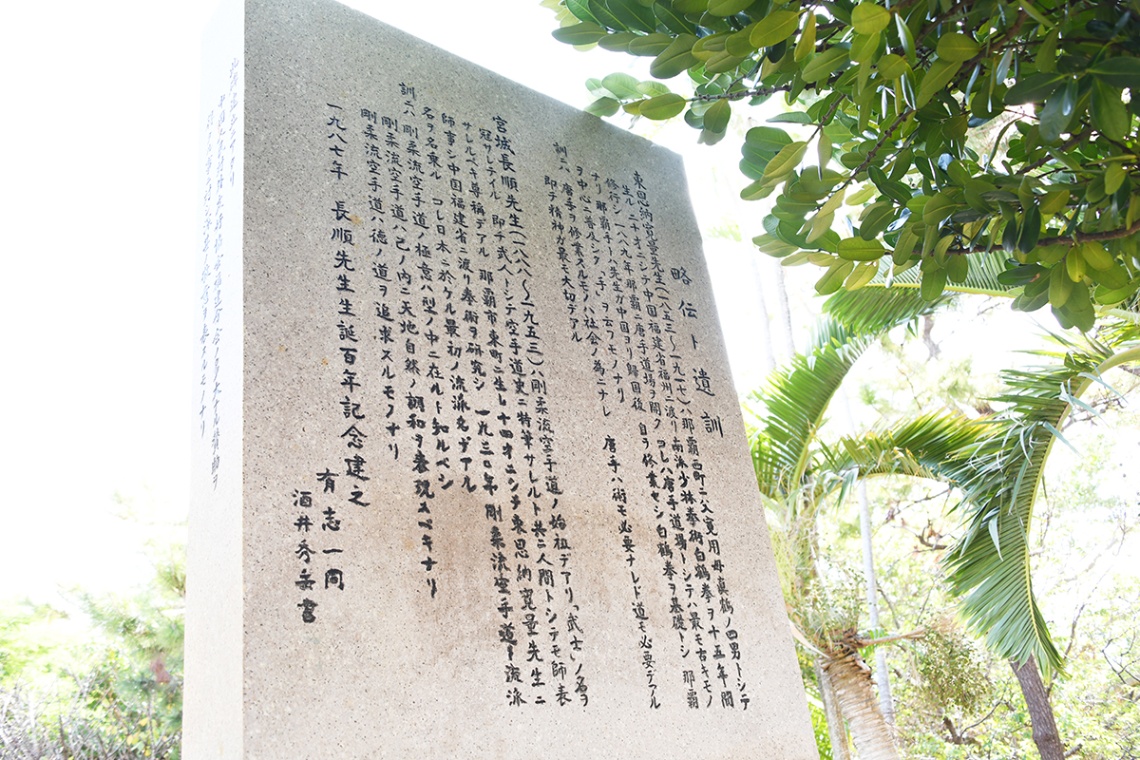 略伝ト遺訓
東恩納寛量先生(一八五三〜一九一七)ハ那覇西町ニ父寛用母真鶴ノ四男トシテ
生ル 二十才ニシテ中国福建省福州ニ渡リ南派少林拳術白鶴拳ヲ十五年間
修行シ一八八九年那覇ニ唐手道場ヲ開ク コレハ唐手道場トシテハ最モ古キモノ
ナリ 那覇手トハ先生ガ中国ヨリ帰国後 自ラ修業セシ白鶴拳ヲ基礎トシ 那覇
ヲ中心ニ普及シタ「手」ヲ云フモノナリ
訓ニハ 唐手ヲ修業スルモノハ社会ノ為ニナレ 唐手ハ術モ必要ナレド道モ必要デアル
即チ精神ガ最モ大切デアル
宮城長順先生(一八八八〜一九五三)ハ剛柔流空手道ノ始祖デアリ「武士」ノ名ヲ
冠サレテイル 即チ武人トシテ空手道史ニ特筆サレルト共ニ人間トシテモ師表
サレルベキ尊称デアル 那覇市東町ニ生レ十四才ニシテ東恩納寛量先生ニ
師事シ中国福建省ニ渡リ拳術ヲ研究シ 一九三〇年剛柔流空手道ト流派
名ヲ名乗ル コレ日本ニ於ケル最初ノ流派名デアル
訓ニハ 剛柔流空手道ノ極意ハ型ノ中ニ在ルト知ルベシ
剛柔流空手道ハ己ノ内ニ天地自然ノ調和ヲ表現スベキナリ
剛柔流空手道ハ徳ノ道ヲ追求スルモノナリ
一九八七年 長順先生生誕百年記念建之
有志一同
酒井秀岳書